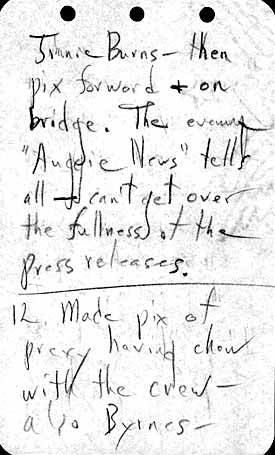 Jimmie Burns - then
pix forward + on
bridge. The evening
"Auggie News" tells
all - I can't get over
the fullness of the
press releases.
12. Made pix of
prexy having chow
with the crew -
also Byrnes -